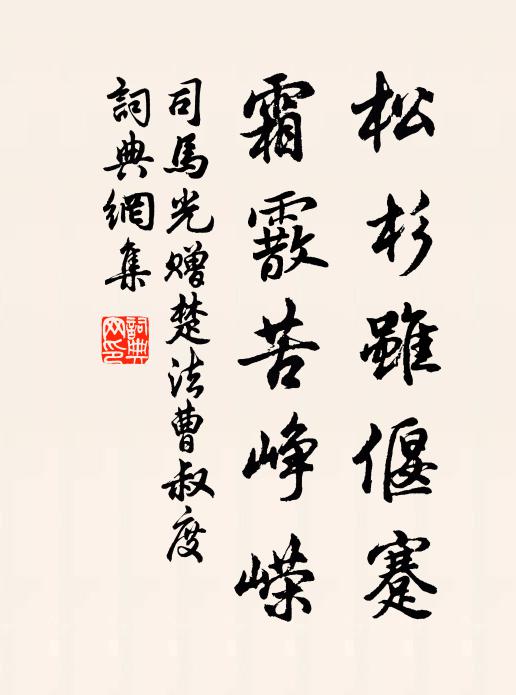 松杉雖偃蹇
霜霰苦崢嶸
司馬光贈楚法曹叔度
詞典網集
詞典网印